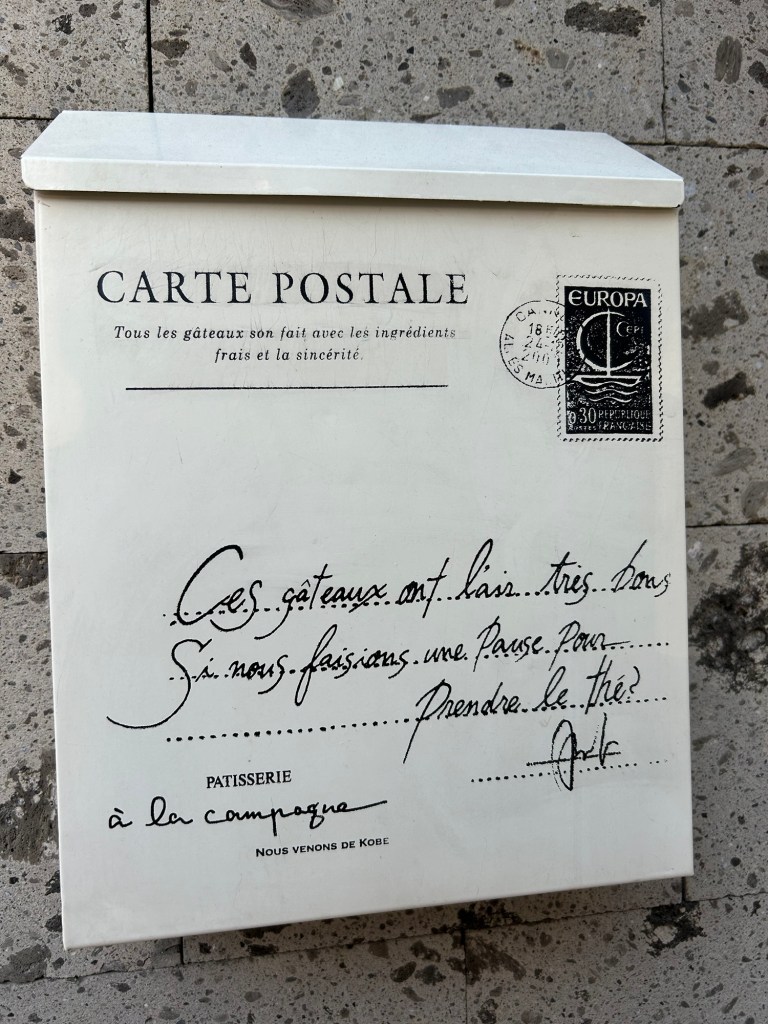 CARTE POSTALE
Tous les gâteaux son fait avec les ingrédients
frais et la sincérité.
EUROPA
CEPT
18 H
24-
0,30 REPUBLIQUE
POSTES FRANÇAISE
Ces gâteaux ont l'air très bons
Si nous faisions une Pause Pour
Prendre le thé?
PATISSERIE
à la campagne
NOUS VENONS DE KOBE